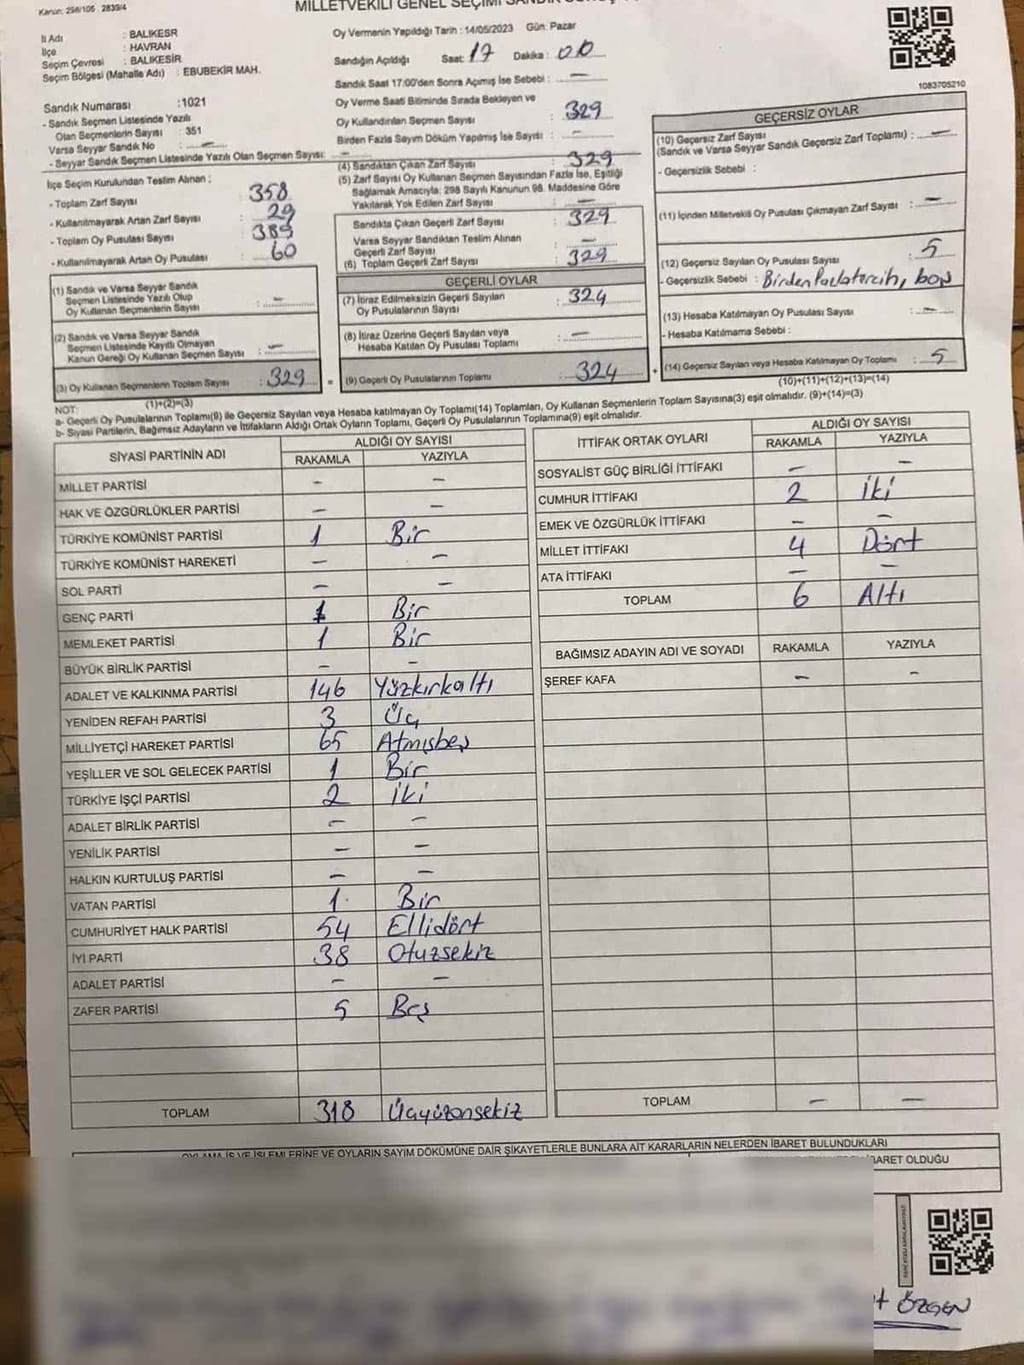 Kanun: 298/105 2839/4
MİLLETVEKİLİ GENEL SEÇİMİ SANDIK
İl Adı : BALIKESR
İlçe : HAVRAN
Seçim Çevresi : BALIKESİR
Seçim Bölgesi (Mahalle Adı) : EBUBEKİR MAH.
Sandık Numarası : 1021
- Sandık Seçmen Listesinde Yazılı
Olan Seçmenlerin Sayısı : 351
Varsa Seyyar Sandık No : —
- Seyyar Sandık Seçmen Listesinde Yazılı Olan Seçmen Sayısı: —
İlçe Seçim Kurulundan Teslim Alınan :
- Toplam Zarf Sayısı 358
- Kullanılmayarak Artan Zarf Sayısı : 29
- Toplam Oy Pusulası Sayısı : 389
- Kullanılmayarak Artan Oy Pusulası : 60
(1) Sandık ve Varsa Seyyar Sandık
Seçmen Listesinde Yazılı Olup
Oy Kullanan Seçmenlerin Sayısı : —
(2) Sandık ve Varsa Seyyar Sandık
Seçmen Listesinde Kayıtlı Olmayan
Kanun Gereği Oy Kullanan Seçmen Sayısı : —
(3) Oy Kullanan Seçmenlerin Toplam Sayısı : 329 =
(1)+(2)=(3)
Oy Vermenin Yapıldığı Tarih : 14/05/2023 Gün: Pazar
Sandığın Açıldığı Saat: 17 Dakika : 00
Sandık Saat 17:00'den Sonra Açımış İse Sebebi : —
Oy Verme Saati Bitiminde Sırada Bekleyen ve
Oy Kullandırılan Seçmen Sayısı : 329
Birden Fazla Sayım Döküm Yapılmış İse Sayısı : —
(4) Sandıktan Çıkan Zarf Sayısı : 329
(5) Zarf Sayısı Oy Kullanan Seçmen Sayısından Fazla İse, Eşitliği
Sağlamak Amacıyla; 298 Sayılı Kanunun 98. Maddesine Göre
Yakılarak Yok Edilen Zarf Sayısı : —
Sandıkta Çıkan Geçerli Zarf Sayısı : 329
Varsa Seyyar Sandıktan Teslim Alınan
Geçerli Zarf Sayısı : —
(6) Toplam Geçerli Zarf Sayısı : 329
GEÇERLİ OYLAR
(7) İtiraz Edilmeksizin Geçerli Sayılan
Oy Pusulalarının Sayısı : 324
(8) İtiraz Üzerine Geçerli Sayılan veya
Hesaba Katılan Oy Pusulası Toplamı : —
(9) Geçerli Oy Pusulalarının Toplamı : 324 +
1083705210
GEÇERSİZ OYLAR
(10) Geçersiz Zarf Sayısı
(Sandık ve Varsa Seyyar Sandık Geçersiz Zarf Toplamı) : —
- Geçersizlik Sebebi :
(11) İçinden Milletvekili Oy Pusulası Çıkmayan Zarf Sayısı : —
(12) Geçersiz Sayılan Oy Pusulası Sayısı : 5
- Geçersizlik Sebebi : Birden fazla tercih, boş
(13) Hesaba Katılmayan Oy Pusulası Sayısı : —
- Hesaba Katılmama Sebebi :
(14) Geçersiz Sayılan veya Hesaba Katılmayan Oy Toplamı : 5
(10)+(11)+(12)+(13)=(14)
NOT:
a- Geçerli Oy Pusulalarının Toplamı(9) ile Geçersiz Sayılan veya Hesaba katılmayan Oy Toplamı(14) Toplamları, Oy Kullanan Seçmenlerin Toplam Sayısına(3) eşit olmalıdır. (9)+(14)=(3)
b- Siyasi Partilerin, Bağımsız Adayların ve İttifakların Aldığı Ortak Oyların Toplamı, Geçerli Oy Pusulalarının Toplamına(9) eşit olmalıdır.
SİYASİ PARTİNİN ADI ALDIĞI OY SAYISI
RAKAMLA YAZIYLA
MİLLET PARTİSİ — —
HAK VE ÖZGÜRLÜKLER PARTİSİ — —
TÜRKİYE KOMÜNİST PARTİSİ 1 Bir
TÜRKİYE KOMÜNİST HAREKETİ — —
SOL PARTİ — —
GENÇ PARTİ 1 Bir
MEMLEKET PARTİSİ 1 Bir
BÜYÜK BİRLİK PARTİSİ — —
ADALET VE KALKINMA PARTİSİ 146 Yüzkırkaltı
YENİDEN REFAH PARTİSİ 3 Üç
MİLLİYETÇİ HAREKET PARTİSİ 65 Atmışbeş
YEŞİLLER VE SOL GELECEK PARTİSİ 1 Bir
TÜRKİYE İŞÇİ PARTİSİ 2 İki
ADALET BİRLİK PARTİSİ — —
YENİLİK PARTİSİ — —
HALKIN KURTULUŞ PARTİSİ — —
VATAN PARTİSİ 1 Bir
CUMHURİYET HALK PARTİSİ 54 Ellidört
İYİ PARTİ 38 Otuzsekiz
ADALET PARTİSİ — —
ZAFER PARTİSİ 5 Beş
TOPLAM 318 Üçyüzonsekiz
İTTİFAK ORTAK OYLARI ALDIĞI OY SAYISI
RAKAMLA YAZIYLA
SOSYALİST GÜÇ BİRLİĞİ İTTİFAKI — —
CUMHUR İTTİFAKI 2 İki
EMEK VE ÖZGÜRLÜK İTTİFAKI — —
MİLLET İTTİFAKI 4 Dört
ATA İTTİFAKI — —
TOPLAM 6 Altı
BAĞIMSIZ ADAYIN ADI VE SOYADI RAKAMLA YAZIYLA
ŞEREF KAFA — —
TOPLAM — —
OYLAMA İŞ VE İŞLEMLERİNE VE OYLARIN SAYIM DÖKÜMÜNE DAİR ŞİKAYETLERLE BUNLARA AİT KARARLARIN NELERDEN İBARET BULUNDUKLARI
BARET OLDUĞU
ÖZGEN